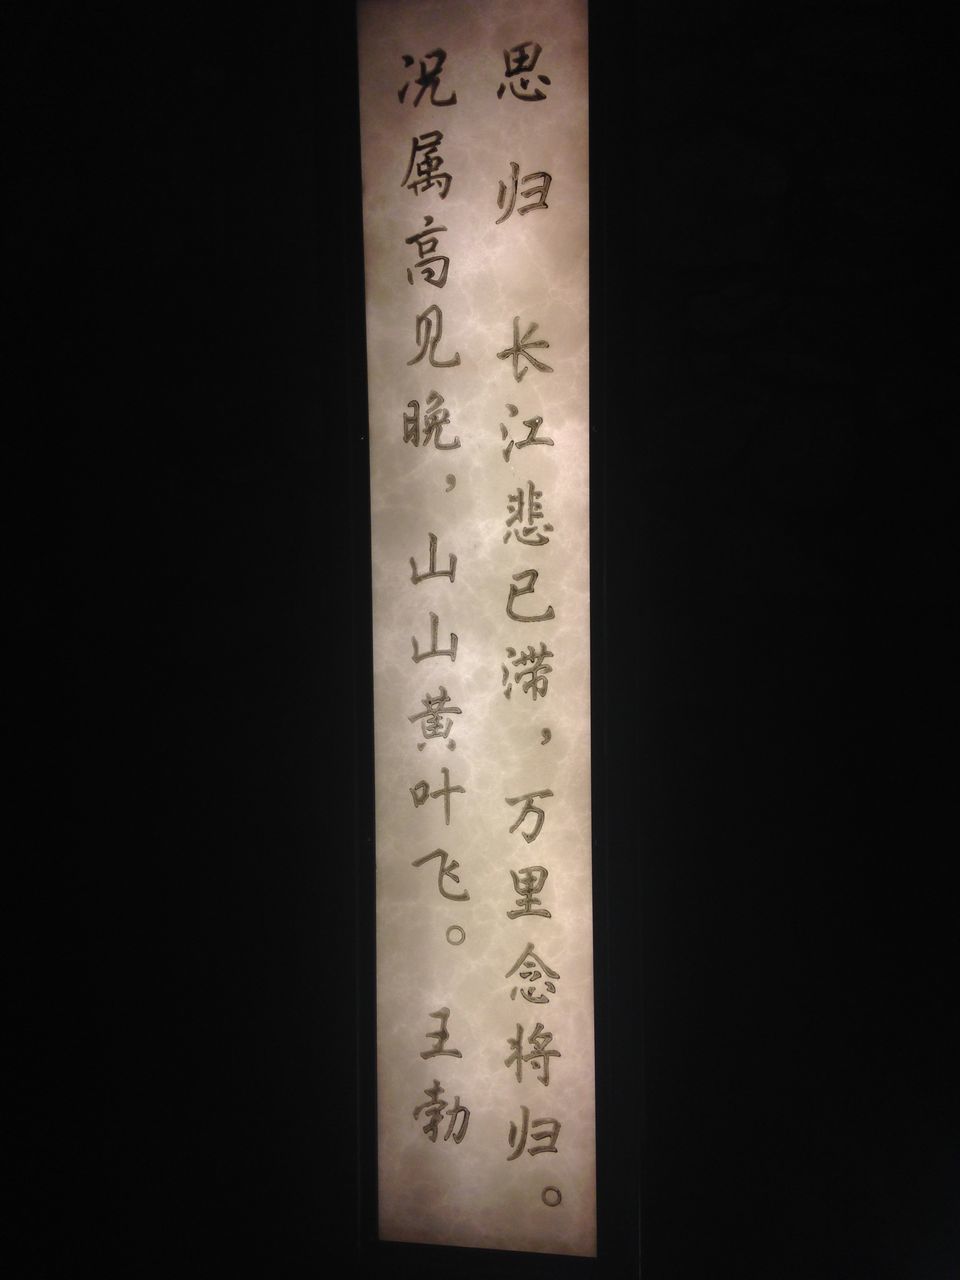 思归 长江悲已滞，万里念将归。
况属高见晚，山山黄叶飞。 王勃